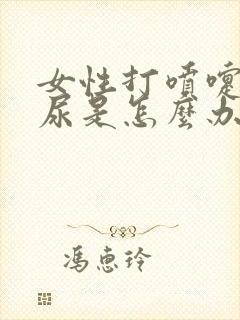 女性打噴嚏
尿是怎麼办
馮惠玲